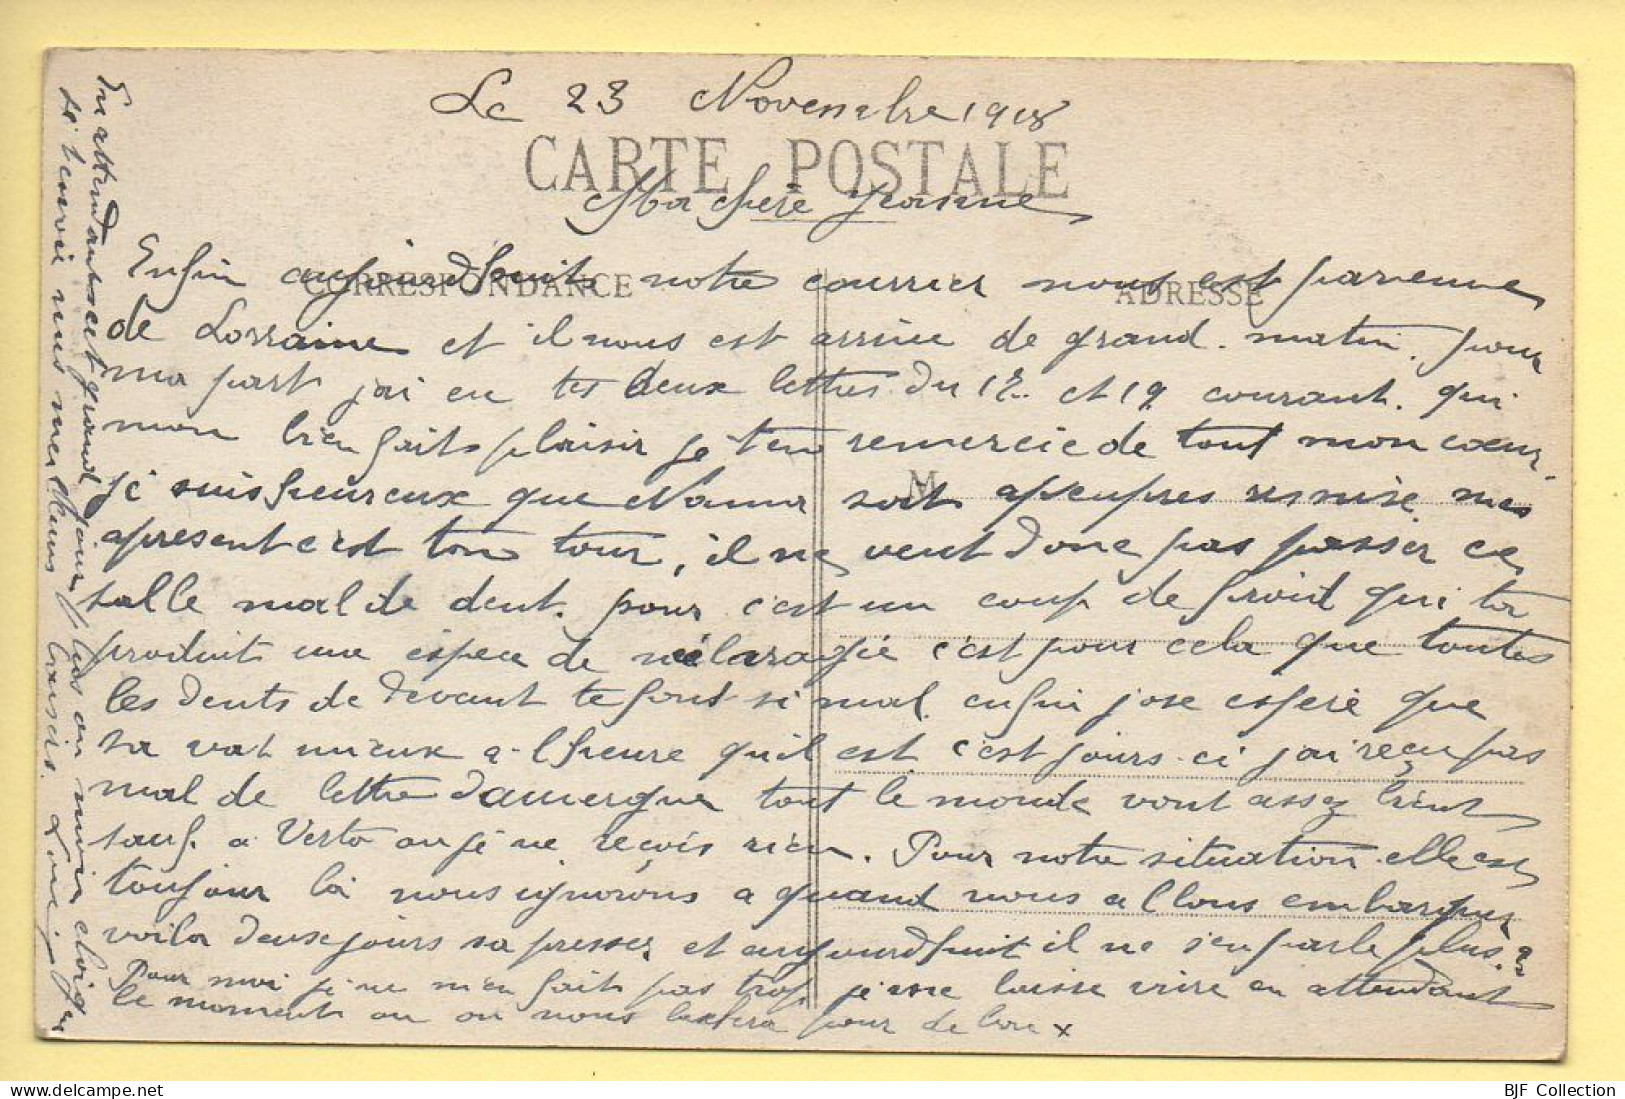 Le 23 Novembre 1918
CARTE POSTALE
Ma chère Jeanne
CORRESPONDANCE
ADRESSE
Enfin aujourdhuit notre courrier nous est parvenue
de Lorraine et il nous est arrivée de grand matin. pour
ma part j'ai eu tes deux lettres du 18 et 19 courant. qui
mon bien faits plaisir je ten remercie de tout mon cœur.
M
je suis heureux que soit apeupres remise mes
apresent c'est ton tour, il ne veut donc pas passer ce
salle mal de dent. pour c'est un coup de froid qui ta
produit une espece de c'est pour cela que toutes
les dents de devant te font si mal. enfin j'ose esperé que
sa vat mieux a l'heure qu'il est c'est jours ci j'ai reçu pas
mal de lettre d'auvergne tout le monde vont assez bient
sauf a Verto ou je ne reçois rien. Pour notre situation elle est
toujour là nous ignorons a quand nous allons embarquer
voila deux jours sa presser et aujourdhuit il ne s'en parle plus.
Pour moi je ne m'en fait pas trop je me laisse vivre en attendant
le moment ou on nous lextera pour de bon x
En attendant set grand jour plus ou moin éloigner
je t'envoie mes meilleurs baisers. Louis
BJF Collection